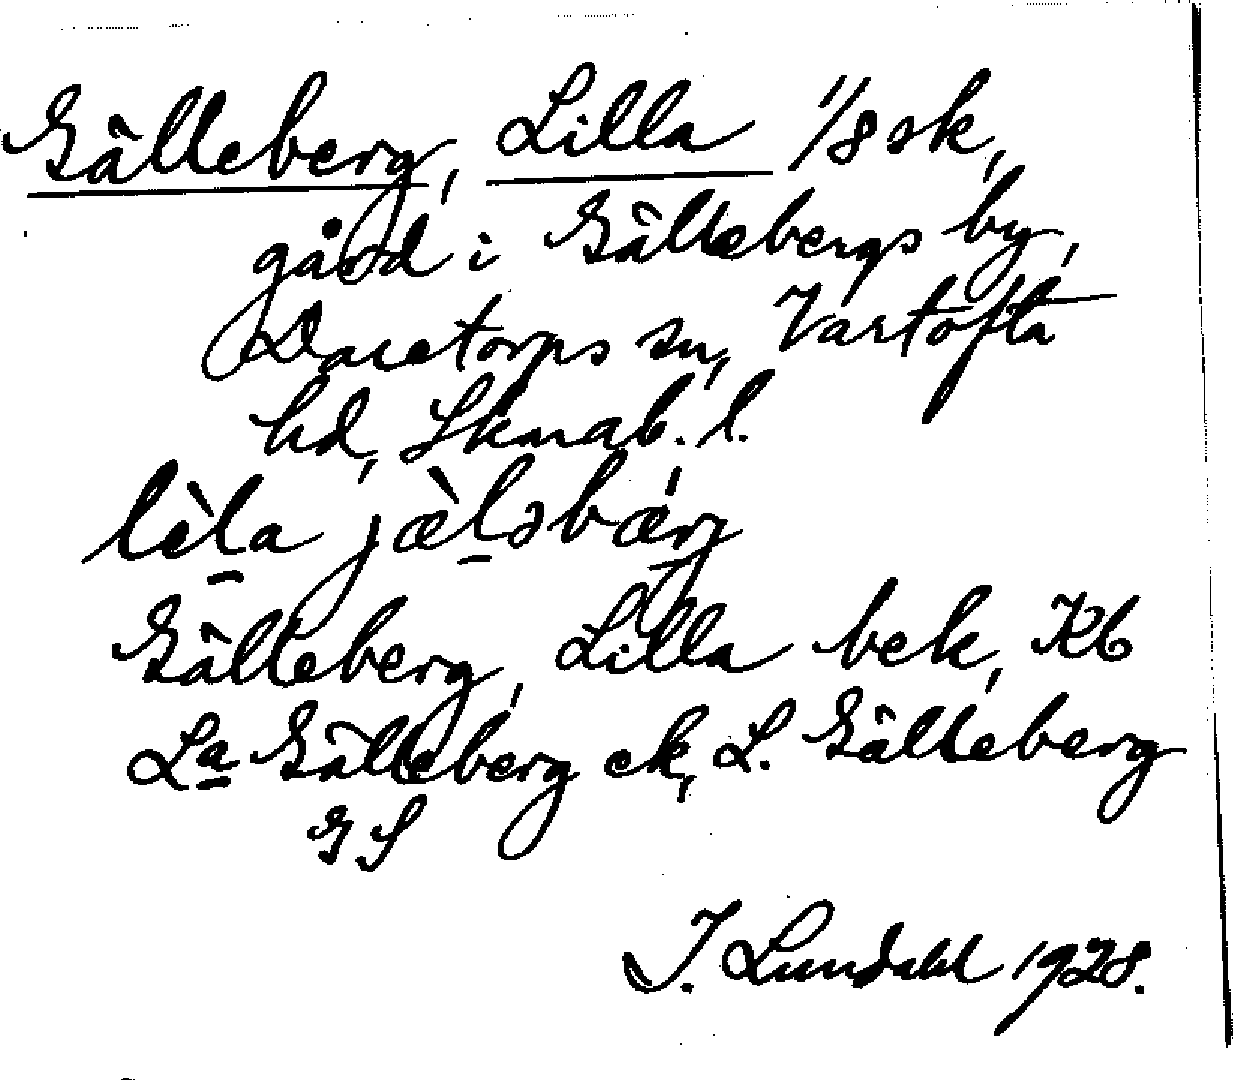 Gälleberg, Lilla 1/8 sk,
gård i Gällebergs by,
Daretorps sn, Vartofta
hd, Skarab. l.
lèla jæ̀lsbærg
Gälleberg, Lilla bek, Kb
La Gälleberg ek, L. Gälleberg
GS
I. Lundahl 1928.